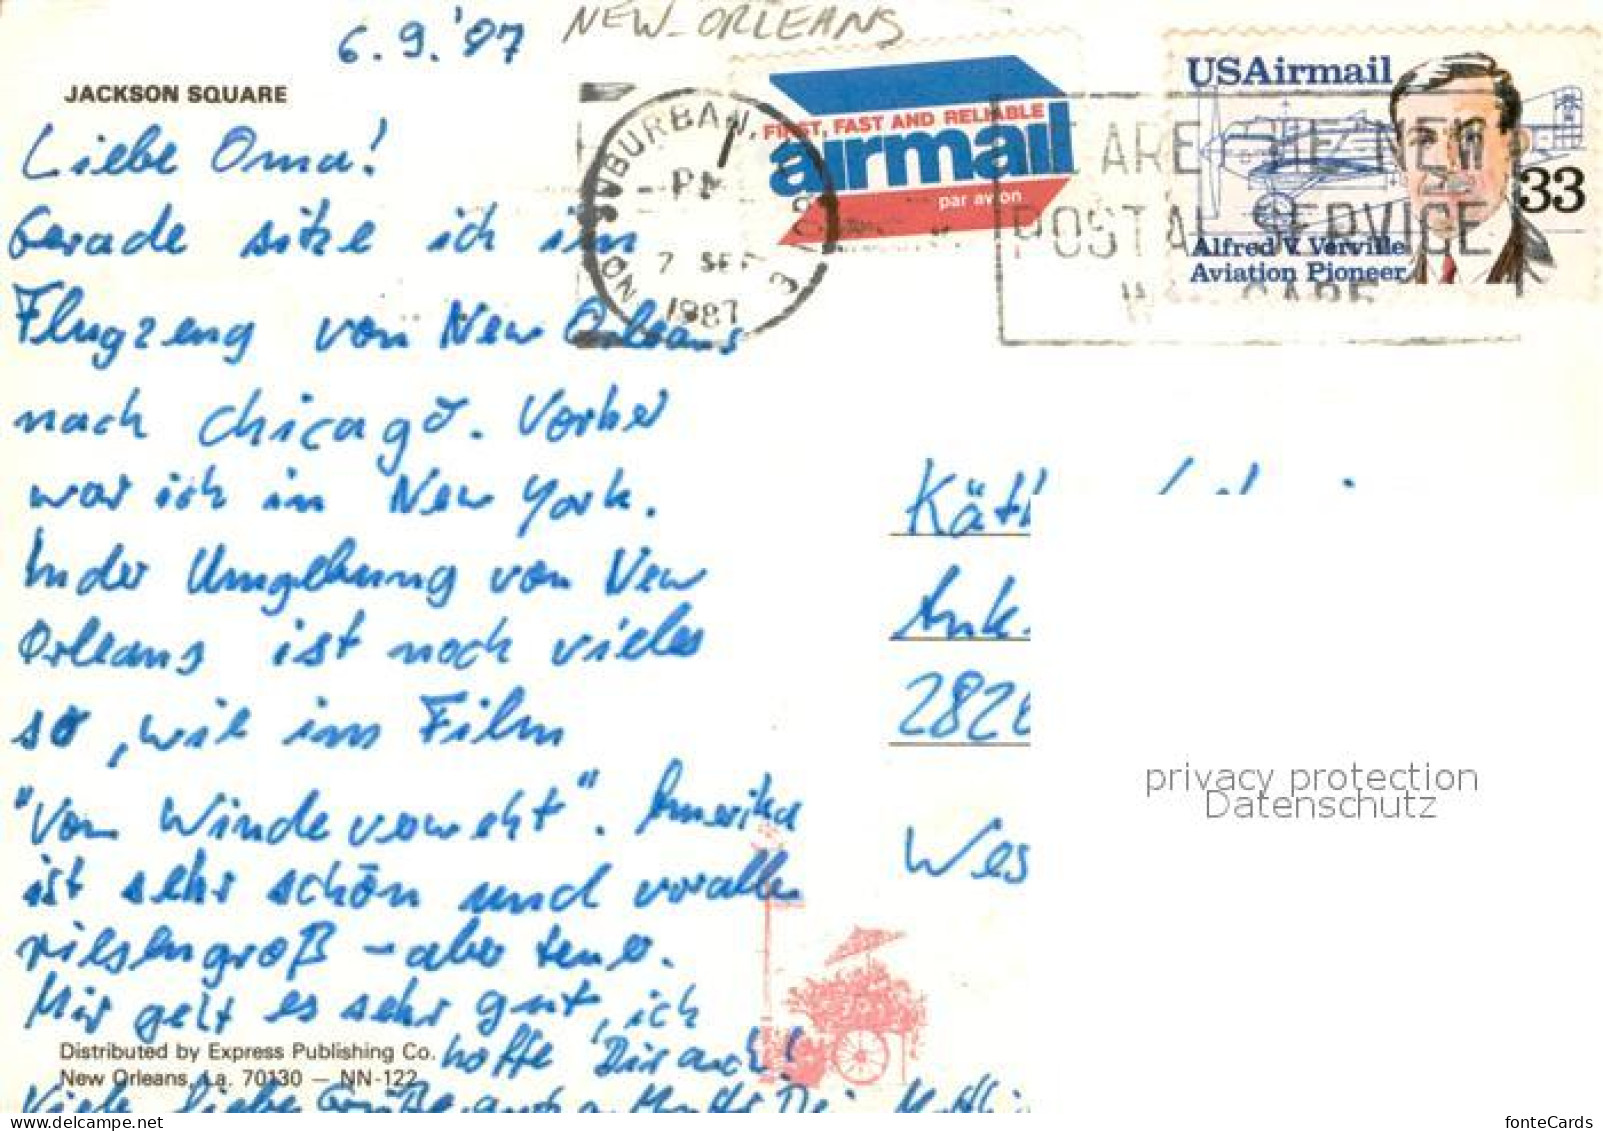 6.9.'87
NEW-ORLEANS
JACKSON SQUARE
Liebe Oma!
Gerade sitze ich im
Flugzeug von New Orleans
nach Chicago. Vorher
war ich in New York.
In der Umgebung von New
Orleans ist noch vieles
so, wie im Film
"Vom Winde verweht". Amerika
ist sehr schön und vor allem
riesengroß – aber teuer.
Mir geht es sehr gut, ich
hoffe Dir auch!
Viele liebe Grüße
Distributed by Express Publishing Co.
New Orleans, La. 70130 — NN-122
SUBURBAN,
PM
7 SEP
1987
FIRST, FAST AND RELIABLE
airmail
par avion
ARE THE NEW
POSTAL SERVICE
WE CARE
USAirmail
33
Alfred V. Verville
Aviation Pioneer
2820
privacy protection
Datenschutz
delcampe.net
fonteCards